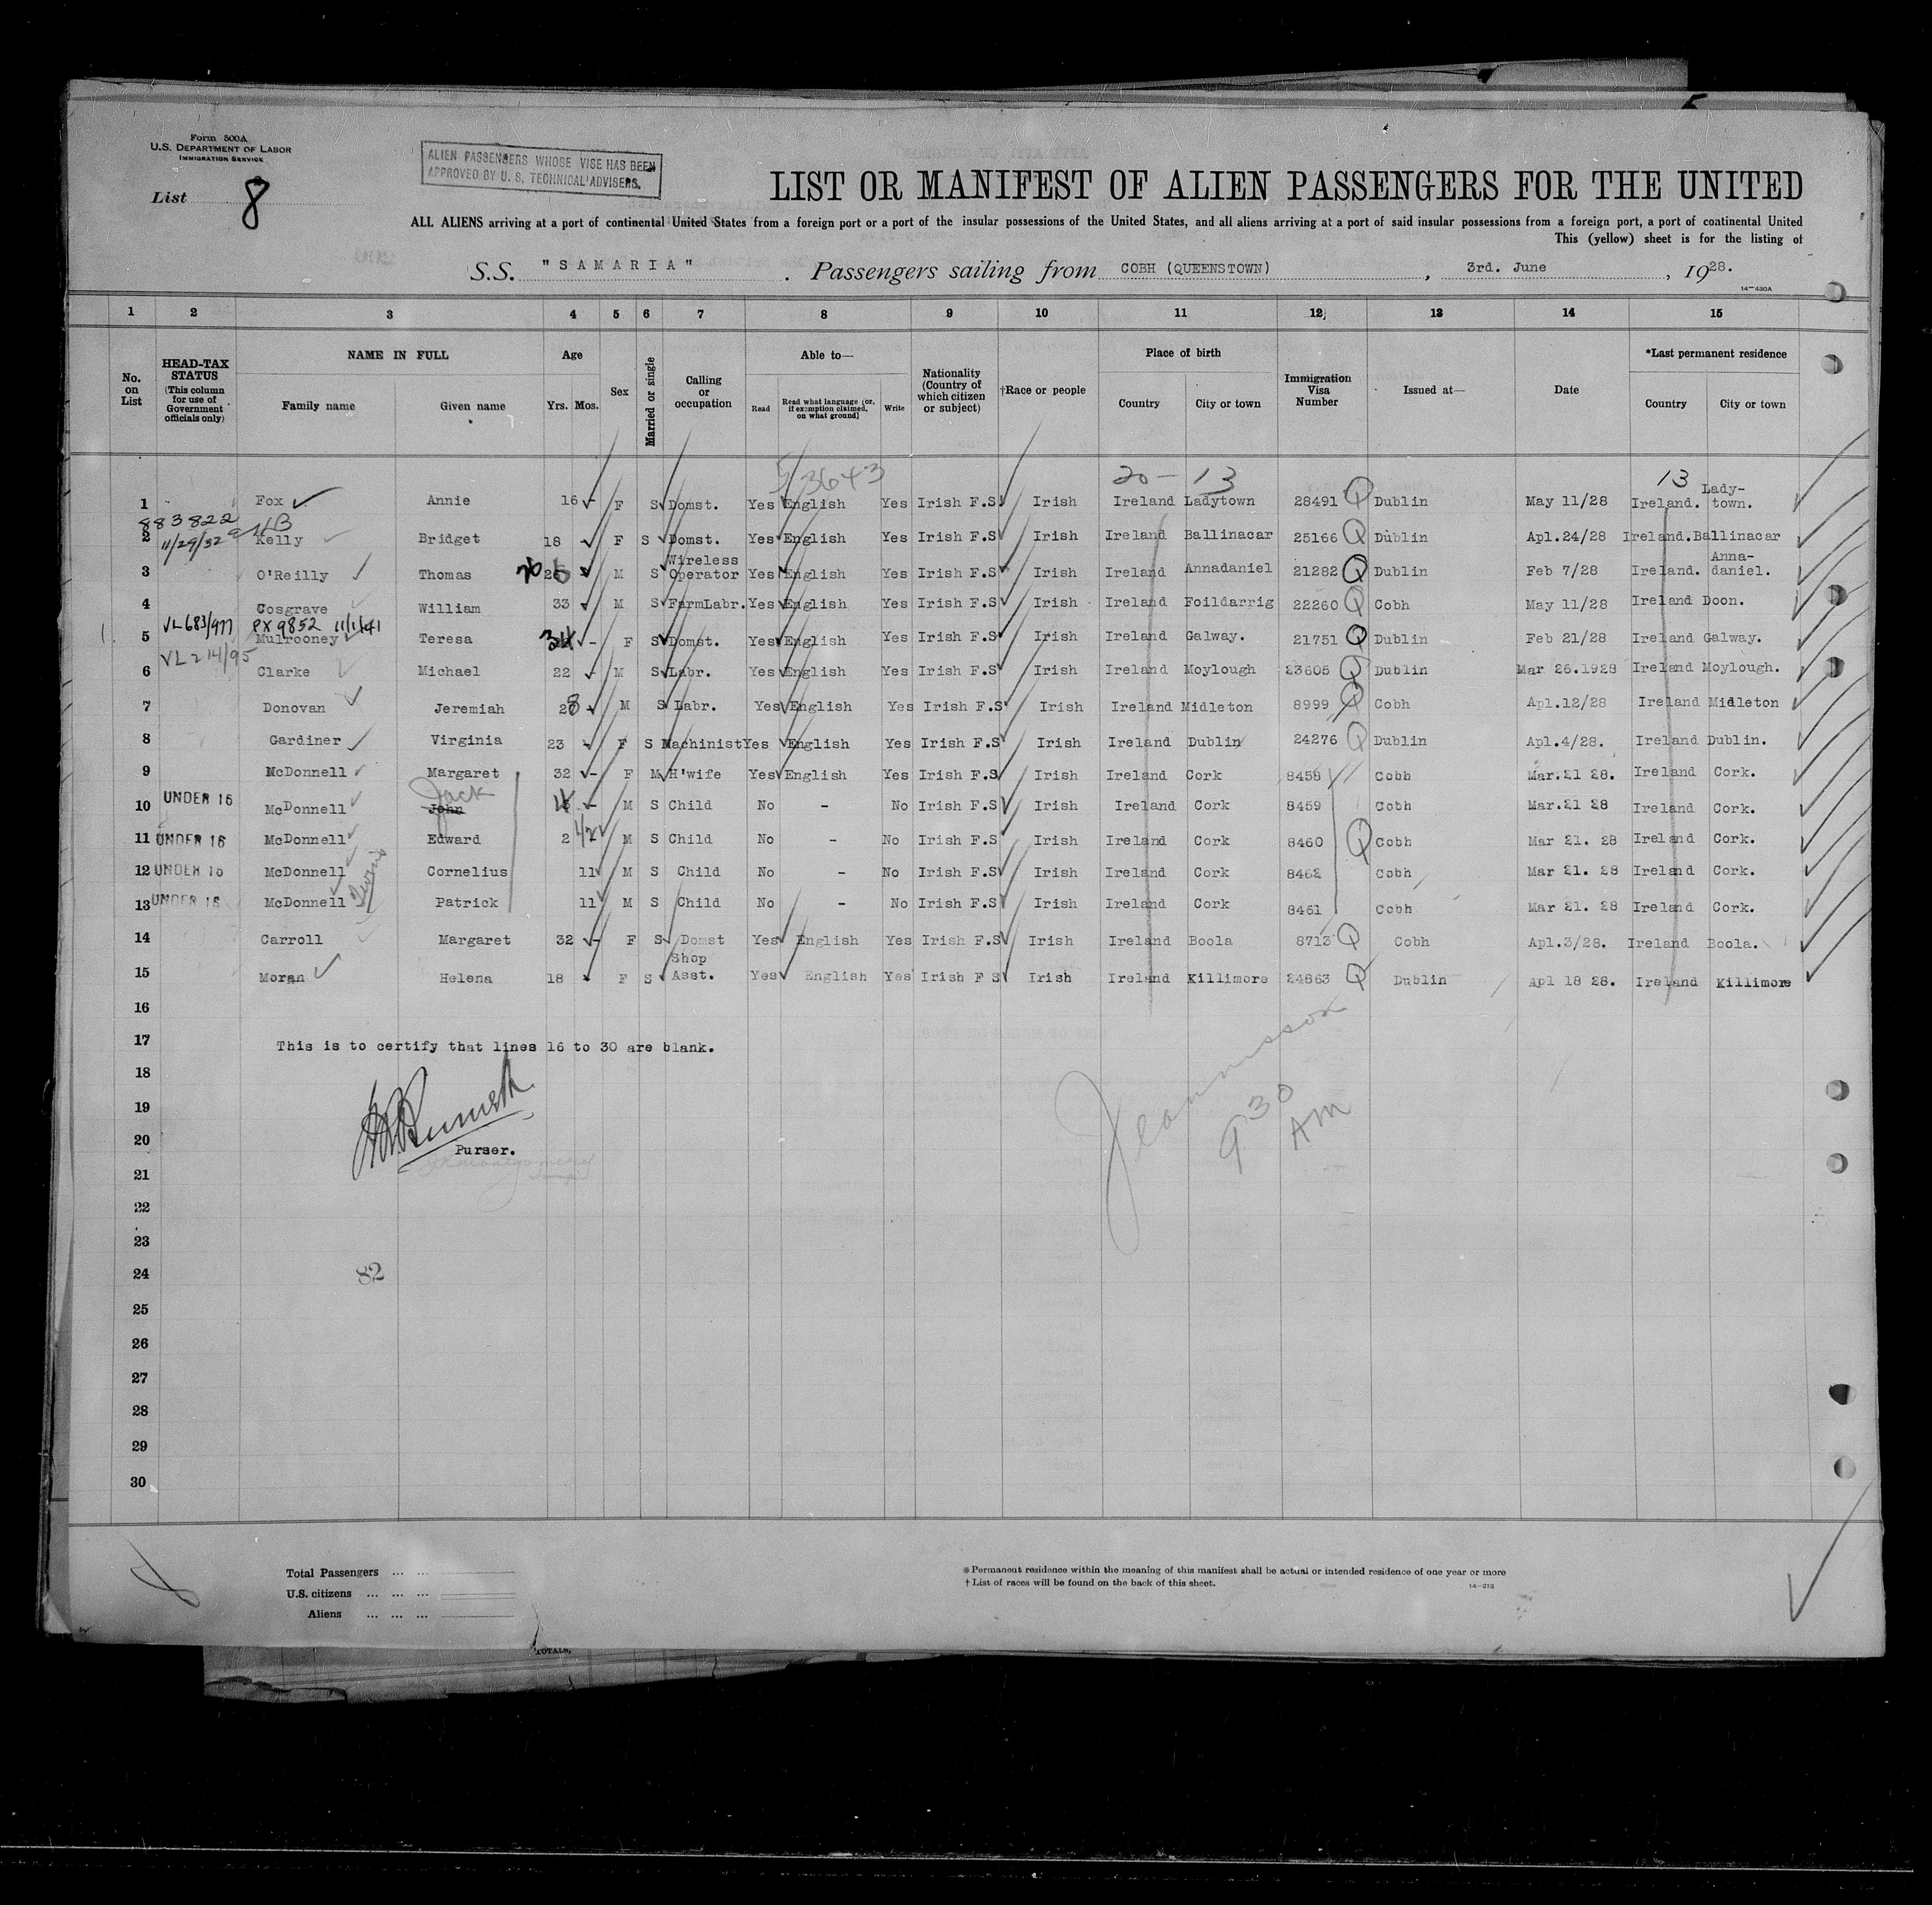 Form 500A
U.S. DEPARTMENT OF LABOR
IMMIGRATION SERVICE
List 8
ALIEN PASSENGERS WHOSE VISE HAS BEEN
APPROVED BY U. S. TECHNICAL ADVISERS.
LIST OR MANIFEST OF ALIEN PASSENGERS FOR THE UNITED
ALL ALIENS arriving at a port of continental United States from a foreign port or a port of the insular possessions of the United States, and all aliens arriving at a port of said insular possessions from a foreign port, a port of continental United
This (yellow) sheet is for the listing of
S.S. "SAMARIA" . Passengers sailing from COBH (QUEENSTOWN) , 3rd. June , 1928.
14-430A
1 2 3 4 5 6 7 8 9 10 11 12 13 14 15
No. on List HEAD-TAX STATUS (This column for use of Government officials only) NAME IN FULL Family name Given name Age Yrs. Mos. Sex Married or single Calling or occupation Able to— Read Read what language [or, if exemption claimed, on what ground] Write Nationality (Country of which citizen or subject) †Race or people Place of birth Country City or town Immigration Visa Number Issued at— Date *Last permanent residence Country City or town
5/3643 20 - 13 13
1 Fox Annie 16 - F S Domst. Yes English Yes Irish F.S Irish Ireland Ladytown 28491 Q Dublin May 11/28 Ireland. Lady-town.
883822
11/29/32
2 Kelly Bridget 18 F S Domst. Yes English Yes Irish F.S Irish Ireland Ballinacar 25166 Q Dublin Apl.24/28 Ireland. Ballinacar
3 O'Reilly Thomas 26 M S Wireless Operator Yes English Yes Irish F.S Irish Ireland Annadaniel 21282 Q Dublin Feb 7/28 Ireland. Anna-daniel.
4 Cosgrave William 33 M S FarmLabr. Yes English Yes Irish F.S Irish Ireland Foildarrig 22260 Q Cobh May 11/28 Ireland Doon.
VL683/977 PX9852 11/1/41
5 Mulrooney Teresa 34 - F S Domst. Yes English Yes Irish F.S Irish Ireland Galway. 21751 Q Dublin Feb 21/28 Ireland Galway.
VL214/95
6 Clarke Michael 22 - M S Labr. Yes English Yes Irish F.S Irish Ireland Moylough 23605 Q Dublin Mar 26.1928 Ireland Moylough.
7 Donovan Jeremiah 28 M S Labr. Yes English Yes Irish F.S Irish Ireland Midleton 8999 Q Cobh Apl.12/28 Ireland Midleton
8 Gardiner Virginia 23 F S Machinist Yes English Yes Irish F.S Irish Ireland Dublin 24276 Q Dublin Apl.4/28. Ireland Dublin.
9 McDonnell Margaret 32 - F M H'wife Yes English Yes Irish F.S Irish Ireland Cork 8458 Cobh Mar.21 28. Ireland Cork.
Jack
10 UNDER 16 McDonnell John 4 - M S Child No - No Irish F.S Irish Ireland Cork 8459 Cobh Mar.21 28 Ireland Cork.
11 UNDER 16 McDonnell Edward 2 1/2 M S Child No - No Irish F.S Irish Ireland Cork 8460 Q Cobh Mar 21. 28 Ireland Cork.
12 UNDER 16 McDonnell Cornelius 11 M S Child No - No Irish F.S Irish Ireland Cork 8462 Cobh Mar 21. 28 Ireland Cork.
13 UNDER 16 McDonnell Patrick 11 M S Child No - No Irish F.S Irish Ireland Cork 8461 Cobh Mar 21. 28 Ireland Cork.
14 Carroll Margaret 32 - F S Domst Yes English Yes Irish F.S Irish Ireland Boola 8713 Q Cobh Apl.3/28. Ireland Boola.
15 Moran Helena 18 F S Shop Asst. Yes English Yes Irish F S Irish Ireland Killimore 24863 Q Dublin Apl 18 28. Ireland Killimore
16
17 This is to certify that lines 16 to 30 are blank.
18
19
20 Purser.
9 30 AM
21
22
23
24 82
25
26
27
28
29
30
Total Passengers ... ...
U.S. citizens ... ... ...
Aliens ... ... ...
*Permanent residence within the meaning of this manifest shall be actual or intended residence of one year or more
† List of races will be found on the back of this sheet.
14-213
TOTALS,